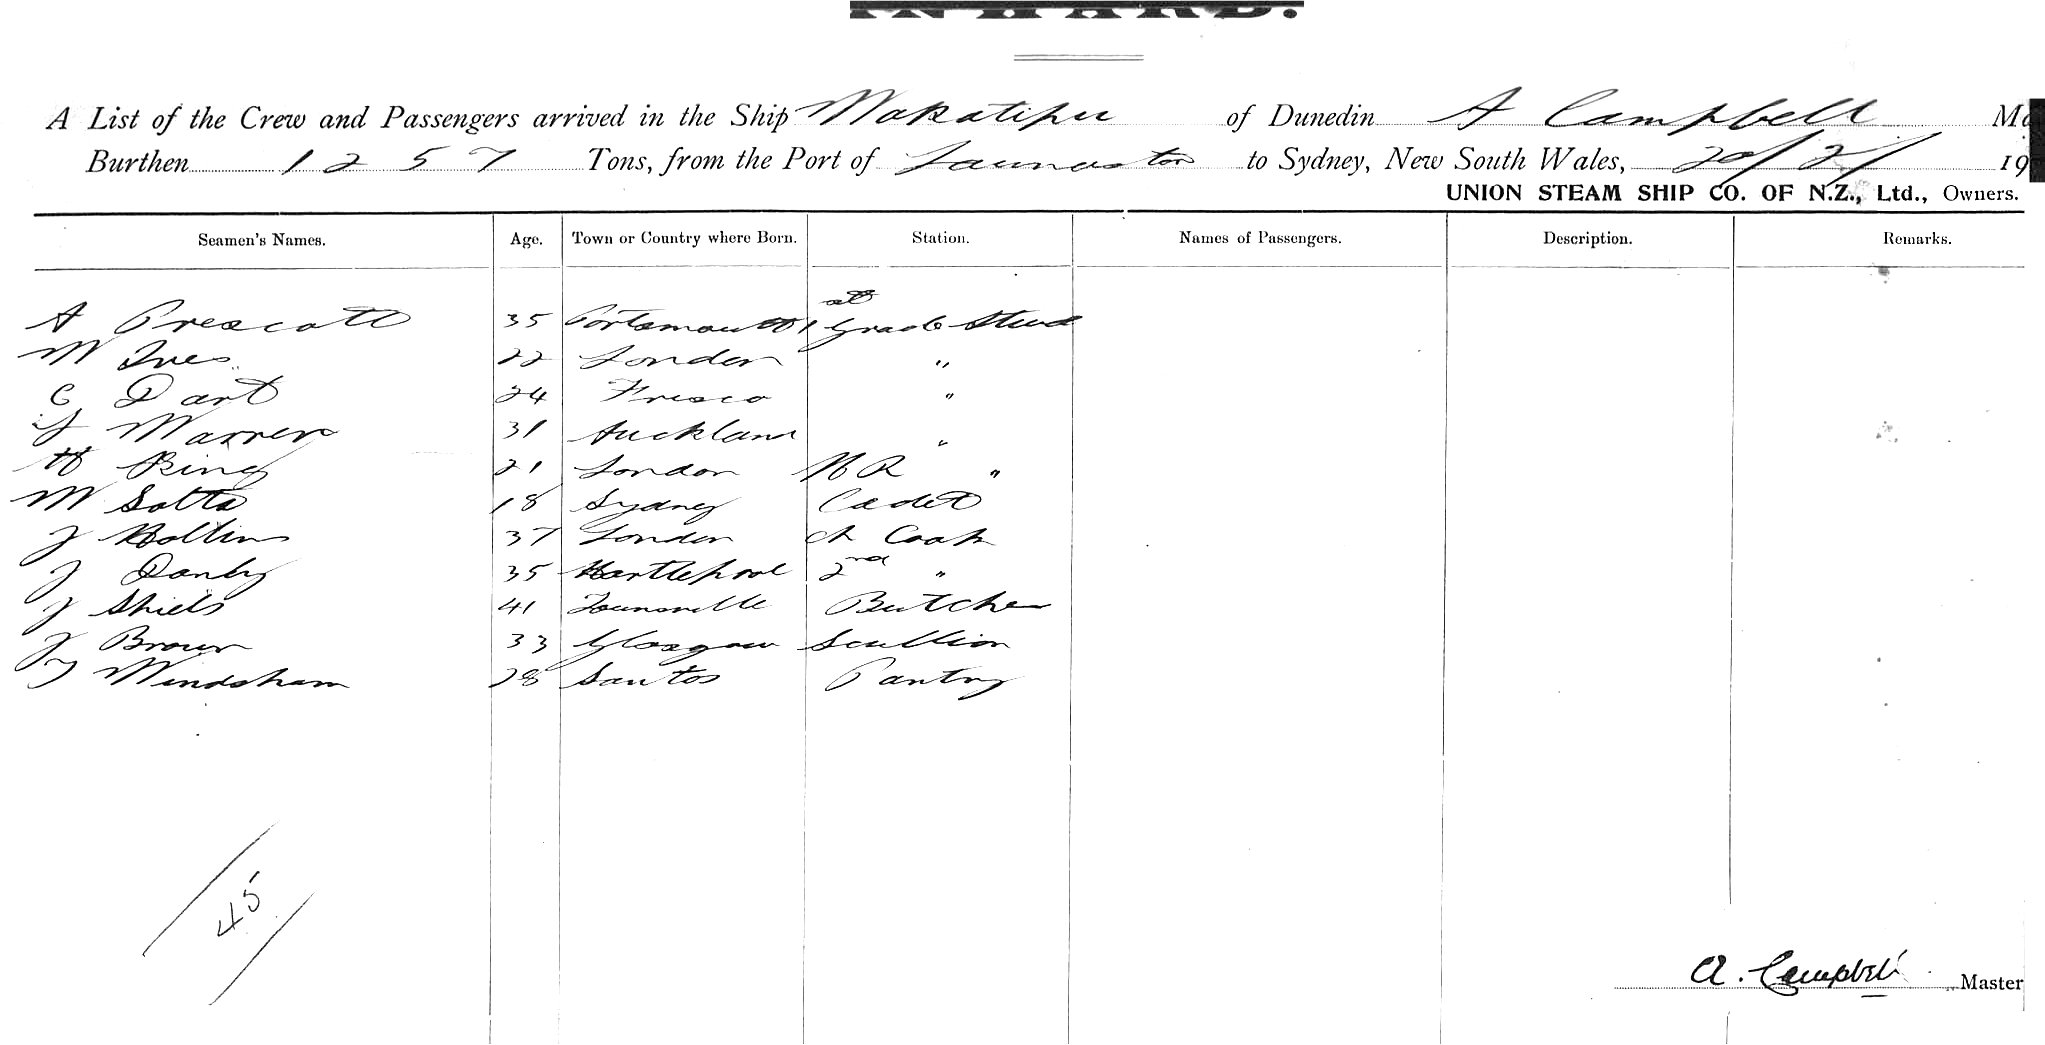 INWARD.
A List of the Crew and Passengers arrived in the Ship Wakatipu of Dunedin A Campbell Ma
Burthen 1257 Tons, from the Port of Launceston to Sydney, New South Wales, 20/2/ 19
UNION STEAM SHIP CO. OF N.Z., Ltd., Owners.
Seamen's Names. Age. Town or Country where Born. Station. Names of Passengers. Description. Remarks.
A Prescott 35 Portsmouth 1st Grade Stwd
W Ives 22 London "
C Dart 24 Frisco "
Warren 31 Auckland "
H King 21 London "
W 18 Sydney Cadet
J Hollins 37 London Ch Cook
J Danby 35 Hartlepool 2nd "
J Shiels 41 Townsville Butcher
J Brown 33 Glasgow Scullion
J Windsham 28 Santos Pantry
45
A. Campbell Master